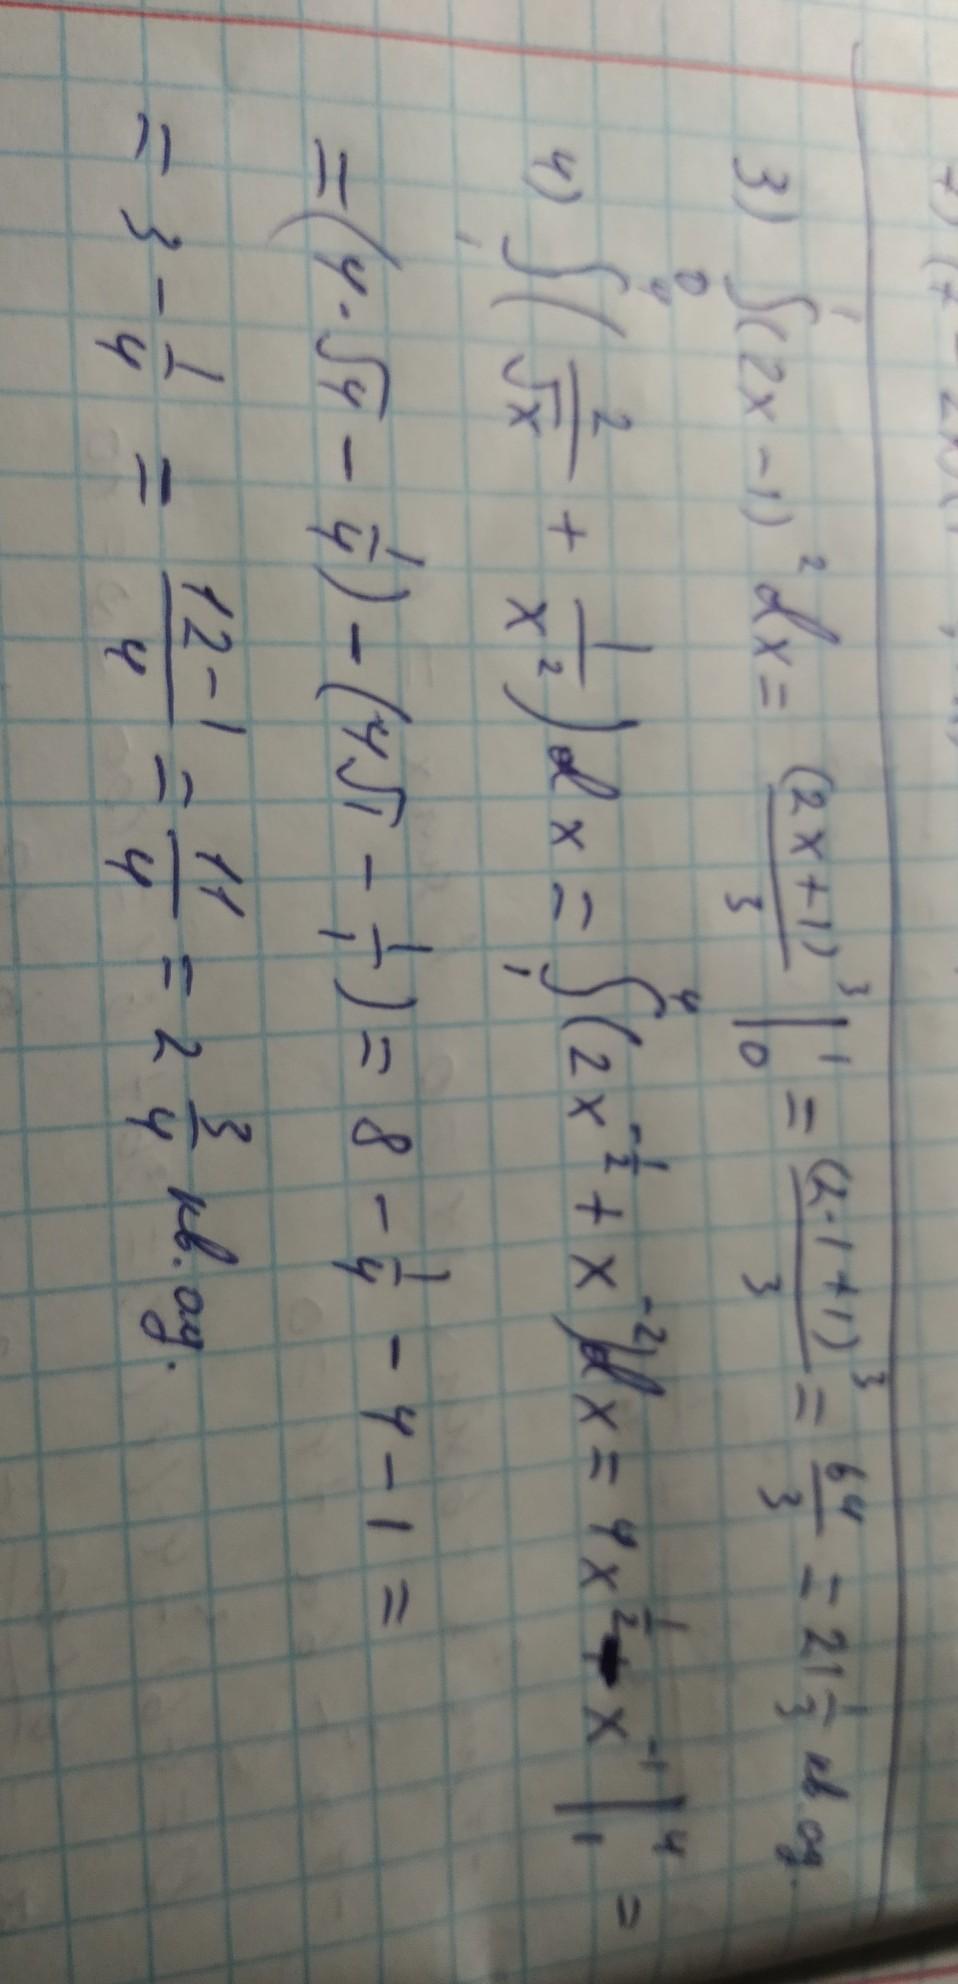 3) ∫₀¹(2x-1)²dx = (2x+1)³/3 |₀¹ = (2·1+1)³/3 = 64/3 = 21 1/3 кв.од.
4) ∫₁⁴(2/√x + 1/x²)dx = ∫₁⁴(2x^(-1/2) + x⁻²)dx = 4x^(1/2) - x⁻¹ |₁⁴ =
= (4·√4 - 1/4) - (4√1 - 1/1) = 8 - 1/4 - 4 - 1 =
= 3 - 1/4 = (12-1)/4 = 11/4 = 2 3/4 кв.од.